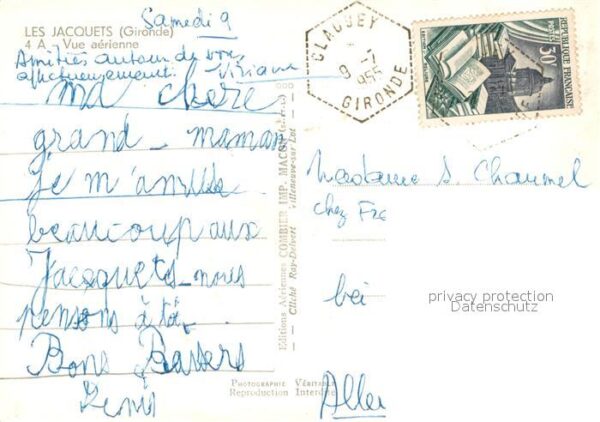 Samedi 9
LES JACQUETS (Gironde)
4 A. Vue aérienne
Amitiés autour de vous
affectueusement. Viviane
ma chère
grand-maman
Je m'amuse
beaucoup aux
Jacquets-nous
pensons à toi
Bons Baisers
Denis
Editions Aériennes COMBIER IMP. MACON
Cliché Ray-Delvert Villeneuve-sur-Lot
PHOTOGRAPHIE VÉRITABLE
Reproduction Interdite
CLAOUEY
9-7
1955
GIRONDE
30F
POSTES
REPUBLIQUE FRANÇAISE
Madame S.
chez
bei
Aller
privacy protection
Datenschutz